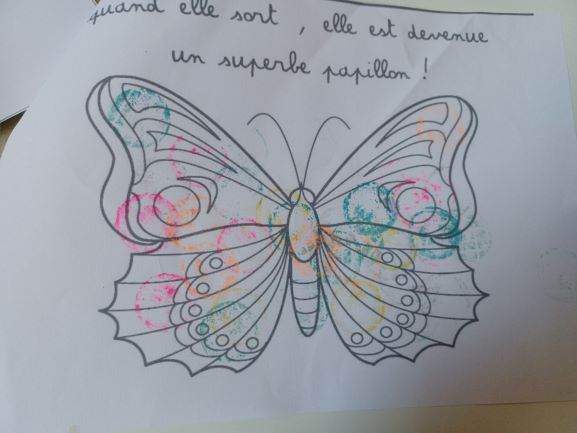 quand elle sort , elle est devenue
un superbe papillon !